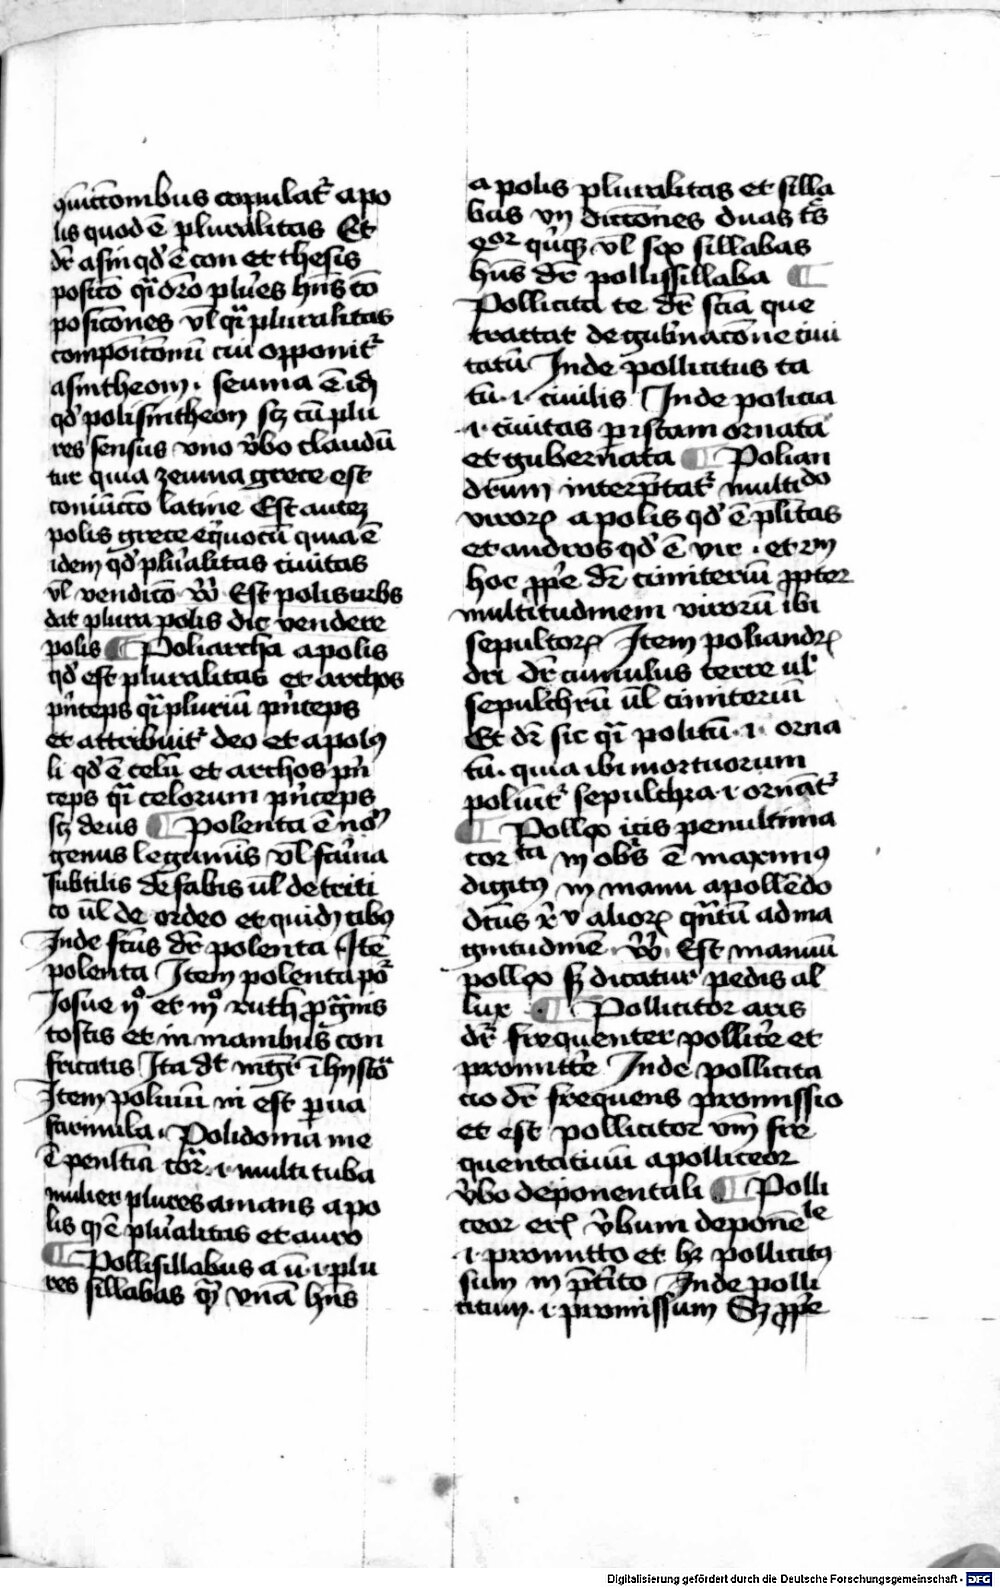 ꝯiūctōnibus copulat᷑ a po
lis quod ē pluralitas Et
dr̄ a sin qd̓ ē con et thesis
positō qͣ dr̄o plures hn̄s cō
positōnes vl̓ qͣ pluralitas
compoītōnū cui opponit᷑
asintheon · seuma ē idꝫ
qd̓ polisintheon sꝫ cū plu
res sensus vno v̓bo claudū
tur quia zeuma grece est
coniūctō latine Est auteꝫ
polis grece eq̄uocū quia ē
idem qd̓ plur̓alitas ciuitas
vl̓ venditō vn̄ Est polis urbs
dat plura polis dic vendere
polis ¶ Poliarcha a polis
qd̓ est pluralitas et archos
pn̄ceps qͣ pluriū pn̄ceps
et attribuit᷑ deo et a polꝰ
li qd̓ ē celū et archos pn̄
ceps qͣ celorum pn̄ceps
sꝫ deus ¶ Polenta ē
genus leguminis vl̓ farīna
subtilis de fabis vl̓ de triti
co vl̓ de ordeo et quidꝫ cibꝰ
Inde fctūs dr̄ polenta Itē
polenta Item polenta
Josue et ruth
tostis et in manibus con
fricatis Ita dt̄ mgr̄ ī hystō
Item poliuiū ni est parua
farinula · Polidoma me
ē penltīa cor̄ · i · multituba
mulier plures amans a po
lis qd̓ ē plur̓alitas et auro
¶ Pollisillabus a ū · i · plu
res sillabas qͣꝫ vnā hn̄s
a polis pluralitas et silla
bas vn̄ dictōnes duas tr̄s
qͦor qīnqꝫ vl̓ sex sillabas
hn̄s dr̄ pollissillaba ¶
Pollicita te dr̄ scīa que
tractat de gub̓nacōne ciui
tatū Inde pollicitus ta
tū · i · ciuilis Inde policia
· i · ciuitas per istam ornata
et gubernata ¶ Polian
drum interp̄tat᷑ multido
viroꝝ a polis qd̓ ē pl̄itas
et andros qd̓ ē vir · et
hoc ꝓpe dr̄ cimiteriū ꝓpter
multitudinem virorū ibi
sepultorꝝ Item poliandrꝝ
dri dr̄ cumulus terre vl̓
sepulchrū vl̓ cimiteriū
Et dr̄ sic qͣ politū · i · orna
tū · quia ibi mortuorum
poliūt᷑ sepulchra · i · ornāt᷑
¶ Pollex icis penultima
corta in obl̓s ē maximꝰ
digitꝰ in manu a pollēdo
dctūs v alioꝝ qn̄tū ad ma
gnitudinē vn̄ Est manuū
pollex sꝫ dicatur pedis al
lux · ¶ Pollicitor aris
dr̄ frequenter pollicēre et
promittēre Inde pollicita
cio dr̄ frequens promissio
et est pollicitor vm̄ fre
quentatiuū a polliceor
v̓bo deponentali ¶ Polli
ceor erꝭ v̓bum deponēle
· i · promitto et hꝫ pollicitꝰ
sum in p̄t̓ito Inde polli
citum · i · promissum Sꝫ ꝓpe
Digitalisierung gefördert durch die Deutsche Forschungsgemeinschaft - DFG